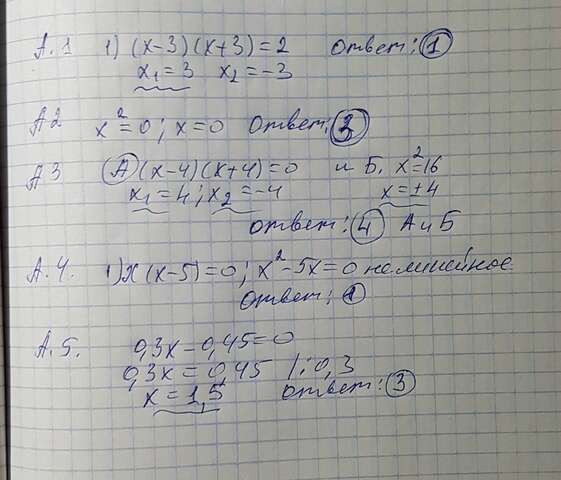 А.1 1) (x-3)(x+3)=2 Ответ: 1
x₁=3 x₂=-3
А2 x²=0; x=0 Ответ: 3
А3 А (x-4)(x+4)=0 и Б. x²=16
x₁=4; x₂=-4 x=±4
ответ: 4 А и Б
А.4. 1) x(x-5)=0; x²-5x=0 нелинейное
Ответ: 1
А.5. 0,3x-0,45=0
0,3x=0,45 /:0,3
x=1,5 Ответ: 3